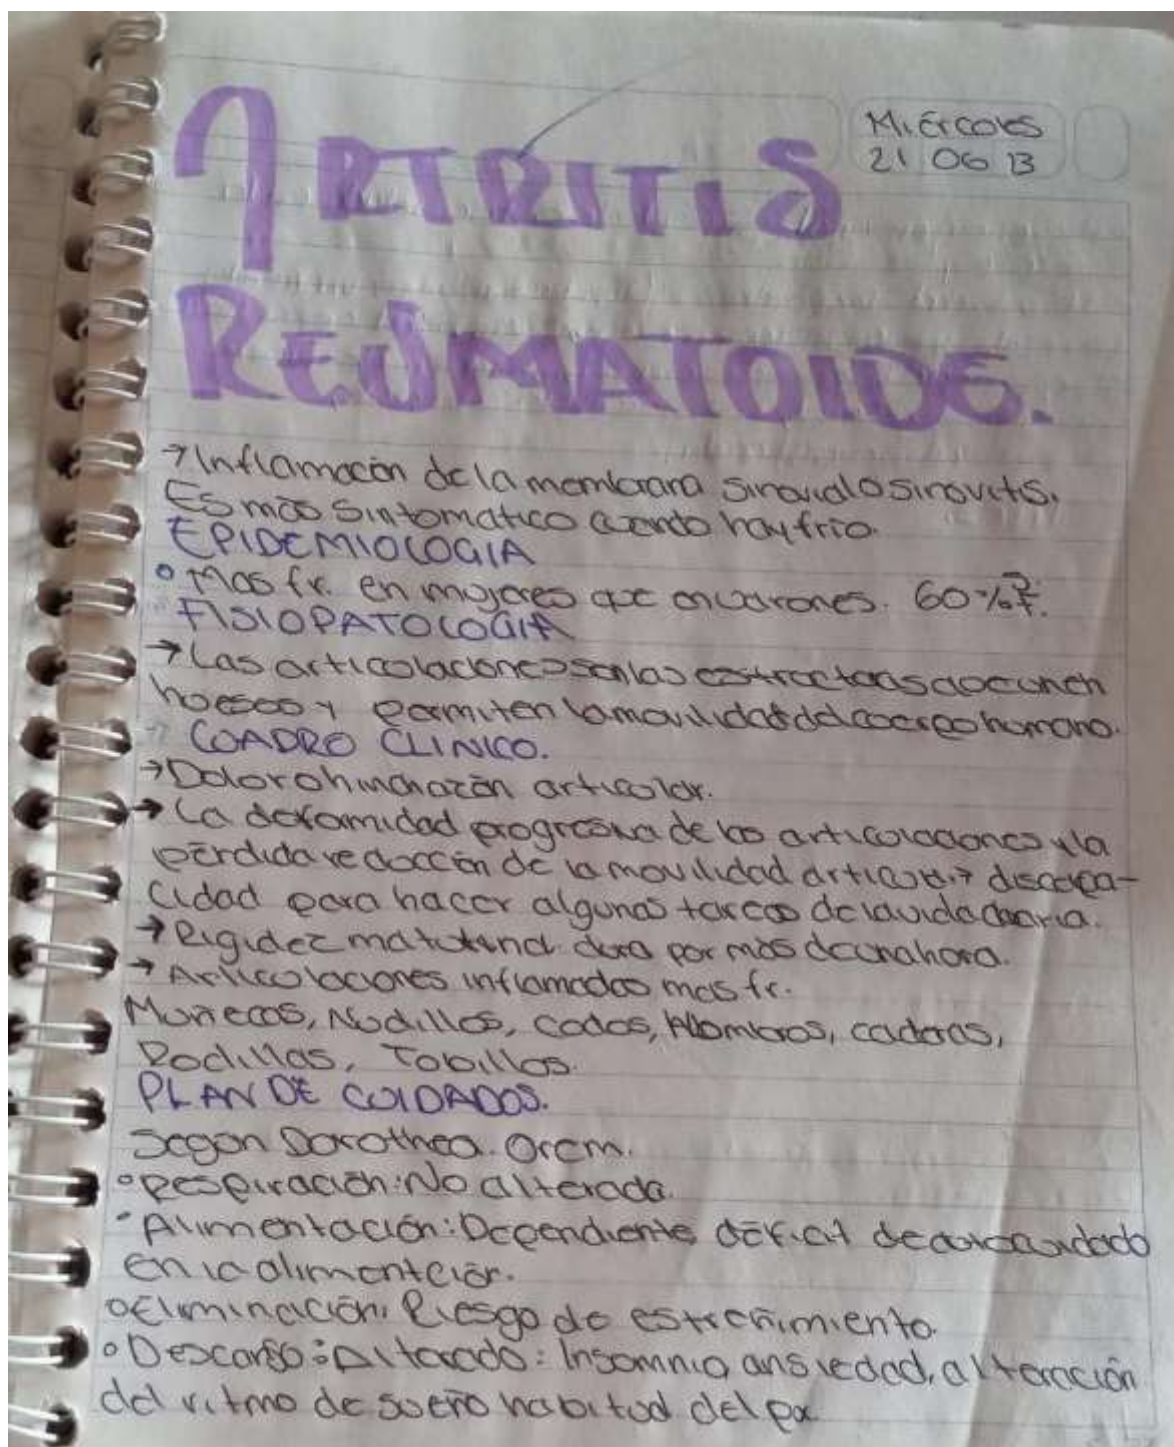 Miércoles
21 06 13
ARTRITIS
REUMATOIDE.
→Inflamación de la membrana sinovial o sinovitis.
Es más sintomático cuando hay frío.
EPIDEMIOLOGIA
Mas fr. en mujeres que en varones. 60%
FISIOPATOLOGIA
→Las articulaciones son las estructuras que unen
huesos y permiten la movilidad del cuerpo humano.
CUADRO CLINICO.
→Dolor o hinchazón articular.
→La deformidad progresiva de las articulaciones y la
pérdida reducción de la movilidad articular→ discapa-
cidad para hacer algunas tareas de la vida diaria.
→Rigidez matutina dura por más de una hora.
→Articulaciones inflamadas mas fr.
Muñecas, Nudillos, codos, Hombros, caderas,
Rodillas, Tobillos.
PLAN DE CUIDADOS.
Segun Dorothea. Orem.
°Respiración: No alterada.
°Alimentación: Dependiente déficit de autocuidado
en la alimentción.
°Eliminación: Riesgo de estreñimiento.
°Descanso: Alterado: Insomnio, ansiedad, alteración
del ritmo de sueño habitual del px